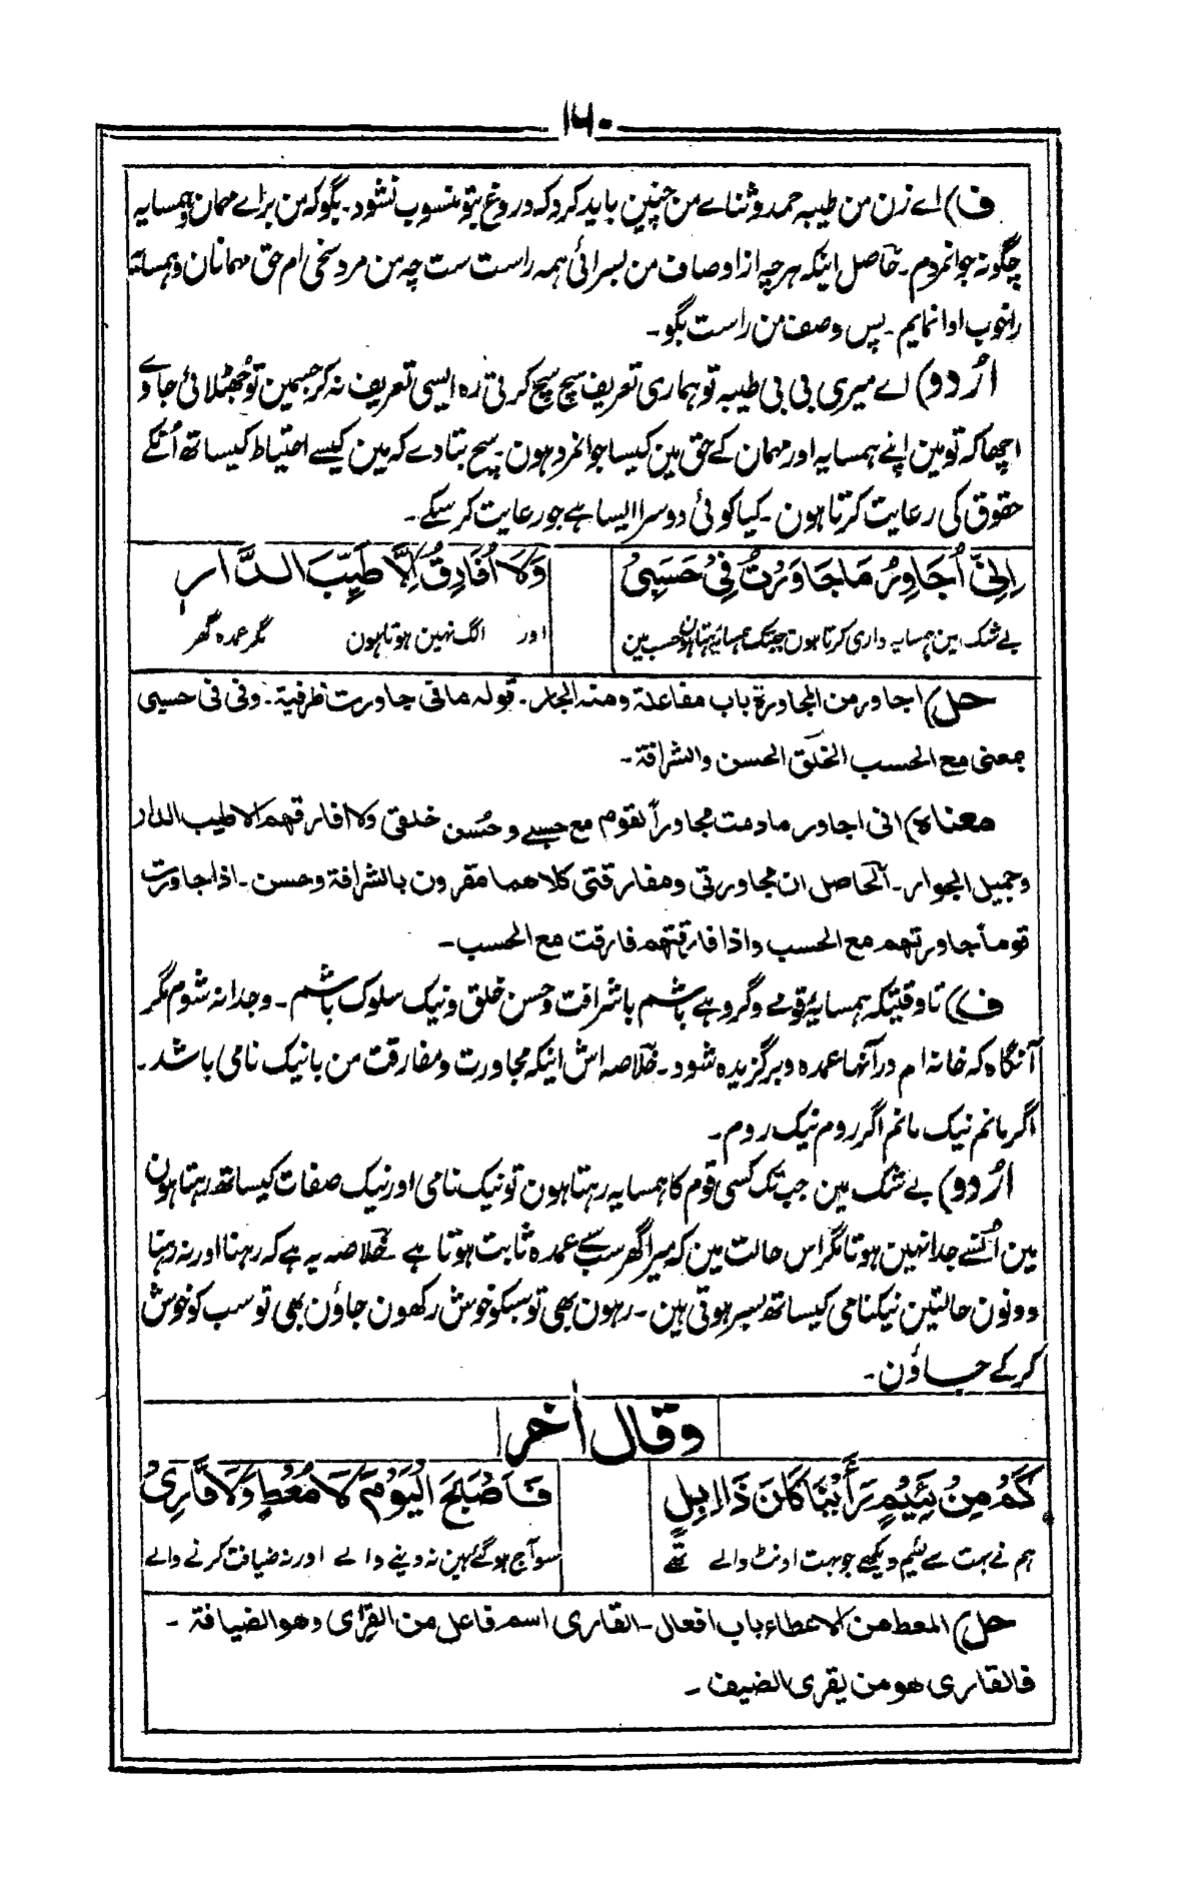 ۱۶۰
ف) اے زن من طیبہ حمد و ثناے من چنین باید کرد کہ دروغ بتو منسوب نشود۔ بگو کہ من براے مہمان و ہمسایہ
چگونہ جوانمردم۔ حاصل اینکہ ہرچہ از اوصاف من بسرائی ہمہ راست ست چہ من مرد سخی ام حق مہمانان و ہمسایہ
را خوب ادا نمایم۔ پس وصف من راست بگو۔
اُردو) اے میری بی بی طیبہ تو ہماری تعریف سچ سچ کرتی رہ ایسی تعریف نہ کر جسمین تو جُھٹلائی جاوے
اچھا کہ تو مین اپنے ہمسایہ اور مہمان کے حق مین کیسا جوانمرد ہون۔ سچ بتا دے کہ مین کیسے احتیاط کیساتھ اُنکے
حقوق کی رعایت کرتا ہون۔ کیا کوئی دوسرا ایسا ہے جو رعایت کر سکے۔
اِنِّیْ اُجَاوِرُ مَا جَاوَرْتُ فِیْ حَسَبِیْ وَلَا اُفَارِقُ اِلَّا طَیِّبَ الدَّارِ
بے شک مین ہمسایہ داری کرتا ہون جبتک ہمسایہ رہتا ہون حسب مین اور الگ نہین ہوتا ہون مگر عمدہ گھر
حل) اجاور من المجاورۃ باب مفاعلۃ ومنہ الجار۔ قولہ ما فی جاورت ظرفیۃ۔ وفی فی حسبی
بمعنی مع الحسب الخلق الحسن والشرافۃ۔
معناہ) انی اجاور مادمت مجاوراً لقوم مع حسبی وحُسن خلقی ولا افارقھم الا طیب الدار
وجمیل الجوار۔ الحاصل ان مجاورتی ومفارقتی کلاھما مقرون بالشرافۃ وحسن۔ اذا جاورت
قوماً جاورتھم مع الحسب واذا فارقتھم فارقت مع الحسب۔
ف) تا وقتیکہ ہمسایۂ قومے وگروہے باشم باشرافت وحسن خلق ونیک سلوک باشم۔ وجدا نہ شوم مگر
آنگاہ کہ خانہ ام در آنہا عمدہ وبرگزیدہ شود۔ خلاصہ اش اینکہ مجاورت ومفارقت من با نیک نامی باشد۔
اگر مانم نیک مانم اگر روم نیک روم۔
اُردو) بے شک مین جب تک کسی قوم کا ہمسایہ رہتا ہون تو نیک نامی اور نیک صفات کیساتھ رہتا ہون
مین اُنسے جدا نہین ہوتا مگر اس حالت مین کہ میرا گھر سب سے عمدہ ثابت ہوتا ہے خلاصہ یہ ہے کہ رہنا اور نہ رہنا
دونون حالتین نیکنامی کیساتھ بسر ہوتی ہین۔ رہون بھی تو سبکو خوش رکھون جاؤن بھی تو سب کو خوش
کرکے جاؤن۔
وقال اٰخر
کَمْ مِنْ لَئِیْمٍ رَأَیْنَا کَانَ ذَا اِبِلٍ فَاَصْبَحَ الْیَوْمَ لَا مُعْطٍ وَلَا قَارِیْ
ہم نے بہت سے لئیم دیکھے جو بہت اونٹ والے تھے سو آج ہو گئے ہین نہ دینے والے اور نہ ضیافت کرنے والے
حل) المعط من الاعطاء باب افعال۔ القاری اسم فاعل من القِرٰی وھو الضیافۃ۔
فالقاری ھو من یقری الضیف۔